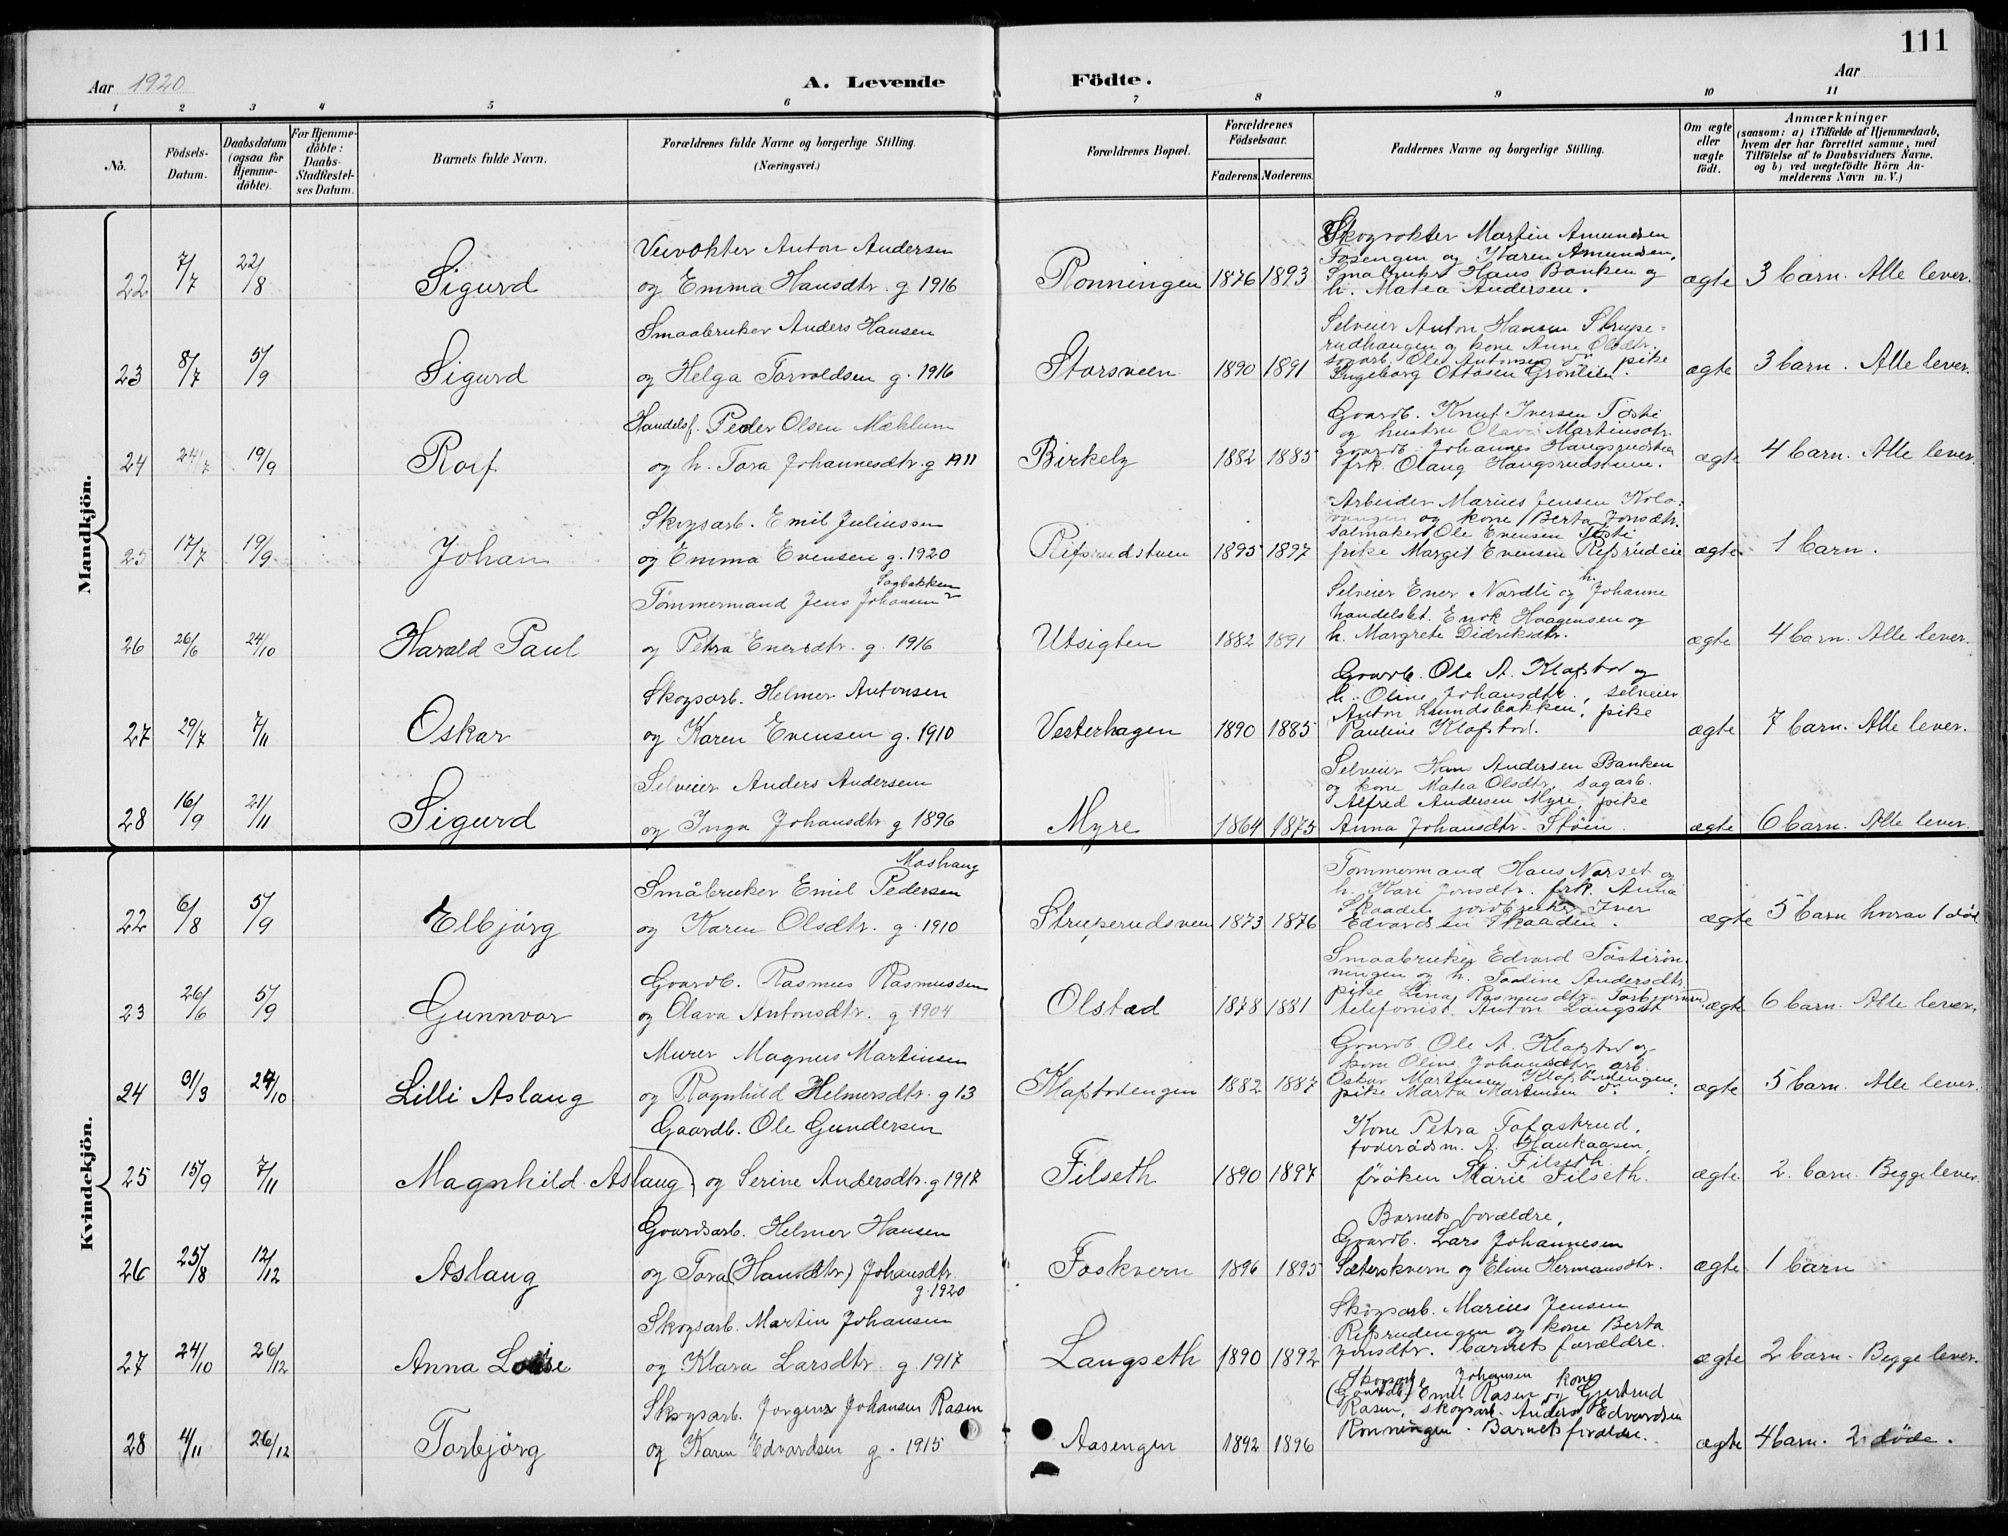 111
Aar 1920
A. Levende Födte.
Aar
1 2 3 4 5 6 7 8 9 10 11
No.
Födsels-Datum.
Daabsdatum (ogsaa for Hjemme-döbte).
For Hjemme-döbte: Daabs-Stadfæstel-ses Datum.
Barnets fulde Navn.
Forældrenes fulde Navne og borgerlige Stilling. (Næringsvei.)
Forældrenes Bopæl.
Forældrenes Födselsaar.
Faderens. Moderens.
Faddernes Navne og borgerlige Stilling.
Om ægte eller uægte födt.
Anmærkninger (saasom: a) i Tilfælde af Hjemmedaab, hvem der har forrettet samme, med Tilföielse af to Daabsvidners Navne. og b) ved uegtefödte Börn An-melderens Navn m. V.)
Mandkjön.
22 7/7 22/8 Sigurd
Veivokter Anton Andersen
og Emma Hansdtr. g 1916
Rønningen 1876 1893
Skogvokter Martin Amundsen
Fosengen og Karen Amundsen,
Smaabruker Hans Banken og
h. Matea Andersen.
ægte 3 barn. Alle lever.
23 8/7 5/9 Sigurd
Smaabruker Anders Hansen
og Helga Torvoldsen g. 1916
Storsveen 1890 1891
Selveier Anton Hansen Strupe-
rudhaugen og kone Anne Olsdtr.
sagarb. Ole Antonsen do pike
Ingeborg Ottosen Grønlien.
ægte 3 barn. Alle lever.
24 24/7 19/9 Rolf
Handelsf. Peder Olsen Mæhlum
og h. Tora Johannesdtr. g 1911
Birkely 1882 1885
Gaardb. Knut Iversen Tøsti
og hustru Olava Martinsdtr.
gaardb. Johannes Haugsrudstuen
frk. Olaug Haugsrudstuen.
ægte 4 barn. Alle lever.
25 17/7 19/9 Johan
Skogsarb. Emil Juliussen
og Emma Evensen g. 1920
Rifsrudstuen 1895 1897
Arbeider Marius Jensen Kolo-
vangen og kone Berta Jonsdtr.
salmaker Ole Evensen Tøsti
pike Margit Evensen Rifsrudeie
ægte 1 barn.
26 26/6 24/10 Harald Paul
Tømmermand Jens Johansen Sagbakken
og Petra Enersdtr. g. 1916
Utsigten 1882 1891
Selveier Ener Nordli og h. Johanne
handelsbt. Enok Haagensen og
h. Margrete Didriksdtr.
ægte 4 barn. Alle lever.
27 29/7 7/11 Oskar
Skogsarb. Helmer Antonsen
og Karen Evensen g. 1910
Vesterhagen 1890 1885
Gaardb. Ole A. Klafstad og
h. Oline Johansdtr., selveier
Anton Lundsbakken, pike
Pauline Klafstad.
ægte 7 barn. Alle lever.
28 16/9 21/11 Sigurd
Selveier Anders Andersen
og Inga Johansdtr g 1896
Myre 1864 1875
Selveier Hans Andersen Banken
og kone Matea Olsdtr, sagarb.
Alfred Andersen Myre, pike
Anna Johansdtr. Støen.
ægte 6 barn. Alle lever.
Kvindekjön.
22 6/8 5/9 Elbjørg
Småbruker Emil Pedersen Moshaug
og Karen Olsdtr. g. 1910
Struperudsveen 1873 1876
Tømmermand Hans Norset og
h. Kari Jonsdtr. frk. Anna
Skaaden, jordbruker Iver
Edvardsen Skaaden.
ægte 5 barn hvorav 1 død
23 26/6 5/9 Gunnvor
Gaardb. Rasmus Rasmussen
og Olava Antonsdtr. g 1904
Olstad 1878 1881
Smaabruker Edvard Tøstirøn-
ningen og h. Todine Andersdtr.
pike Lina Rasmusdtr.
telefonist, Anton Langset
ægte 6 barn. Alle lever.
24 31/3 24/10 Lilli Aslaug
Murer Magnus Martinsen
og Ragnhild Helmersdtr. g 13
Klafstadengen 1882 1887
Gaardb. Ole A. Klafstad og
kone Oline Johansdtr. arb.
Oskar Martinsen Klafstadengen,
pike Marta Martinsen do.
ægte 5 barn. Alle lever.
25 15/9 7/11 Magnhild Aslaug
Gaardb. Ole Gundersen
og Serine Andersdtr. g 1917
Filseth 1890 1897
Kone Petra Tofastrud,
foderådsm. A. Haukaasen,
frøken Marie Filseth.
ægte 2 barn. Begge lever.
26 25/8 12/12 Aslaug
Gaardsarb. Helmer Hansen
og Tora (Hansdtr) Johansdtr. g. 1920
Foskvern 1896 1895
Barnets forældre,
Gaardb. Lars Johannesen
Sæterskvern og Eline Hermansdtr.
ægte 1 barn
27 24/10 26/12 Anna Loise
Skogsarb. Martin Johansen
og Klara Larsdtr. g 1917
Langseth 1890 1892
Skogsarb. Marius Jensen
Rifsrudengen og kone Berta
Jonsdtr. barnets forældre.
ægte 2 barn. Begge lever.
28 4/11 26/12 Torbjørg
Skogsarb. Jørgen Johansen Rasen
og Karen Edvardsen g. 1915
Aasengen 1892 1896
Skogsarb. Johansen kone
(Gaardb.) Emil Rasen og Gjertrud
Rasen, skogsarb. Anders Edvardsen
Rønningen. Barnets forældre.
ægte 4 barn. 2 døde.